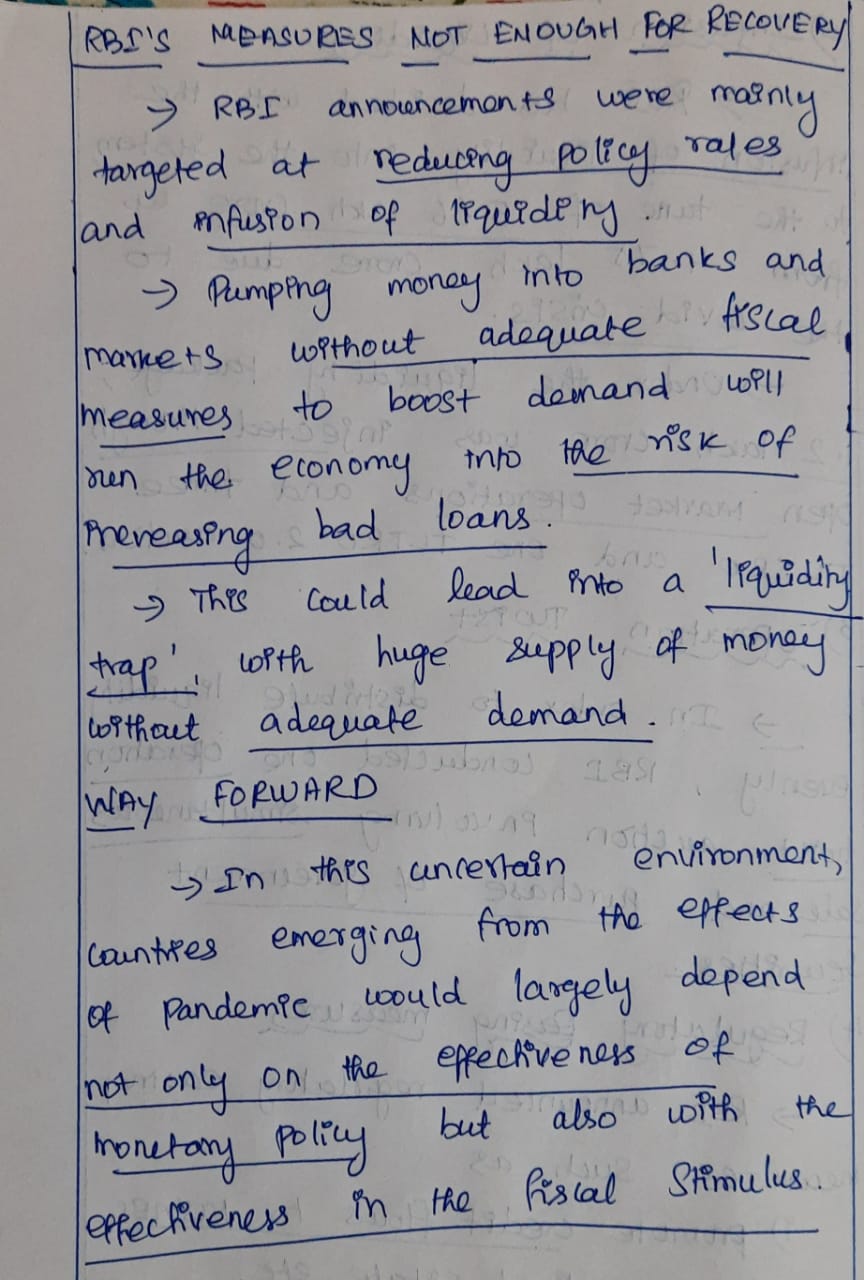 RBI'S MEASURES NOT ENOUGH FOR RECOVERY
→ RBI announcements were mainly
targeted at reducing policy rates
and infusion of liquidity.
→ Pumping money into banks and
markets without adequate fiscal
measures to boost demand will
run the economy into the risk of
increasing bad loans.
→ This could lead into a 'liquidity
trap', with huge supply of money
without adequate demand.
WAY FORWARD
→ In this uncertain environment,
countries emerging from the effects
of pandemic would largely depend
not only on the effectiveness of
monetary policy but also with the
effectiveness in the fiscal stimulus.